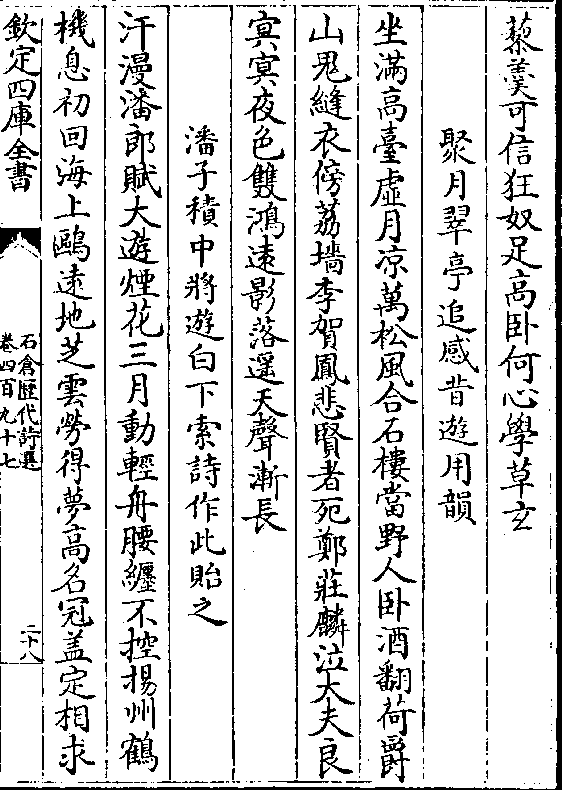 藜羹可信狂奴足高卧何心學草玄
聚月翠亭追感昔遊用韻
坐滿高臺虛月凉萬松風合石樓當野人卧酒翻荷爵
山鬼縫衣傍荔墻李賀鳳悲賢者死鄭莊麟泣大夫良
寞寞夜色雙鴻遠影落遥天聲漸長
潘子積中將遊白下索詩作此貽之
汗漫潘郎賦大遊煙花三月動輕舟腰纏不控揚州鶴
機息初回海上鷗遠地芝雲勞得夢高名冠盖定相求
欽定四庫全書
石倉歷代詩選
卷四百九十七
二十八